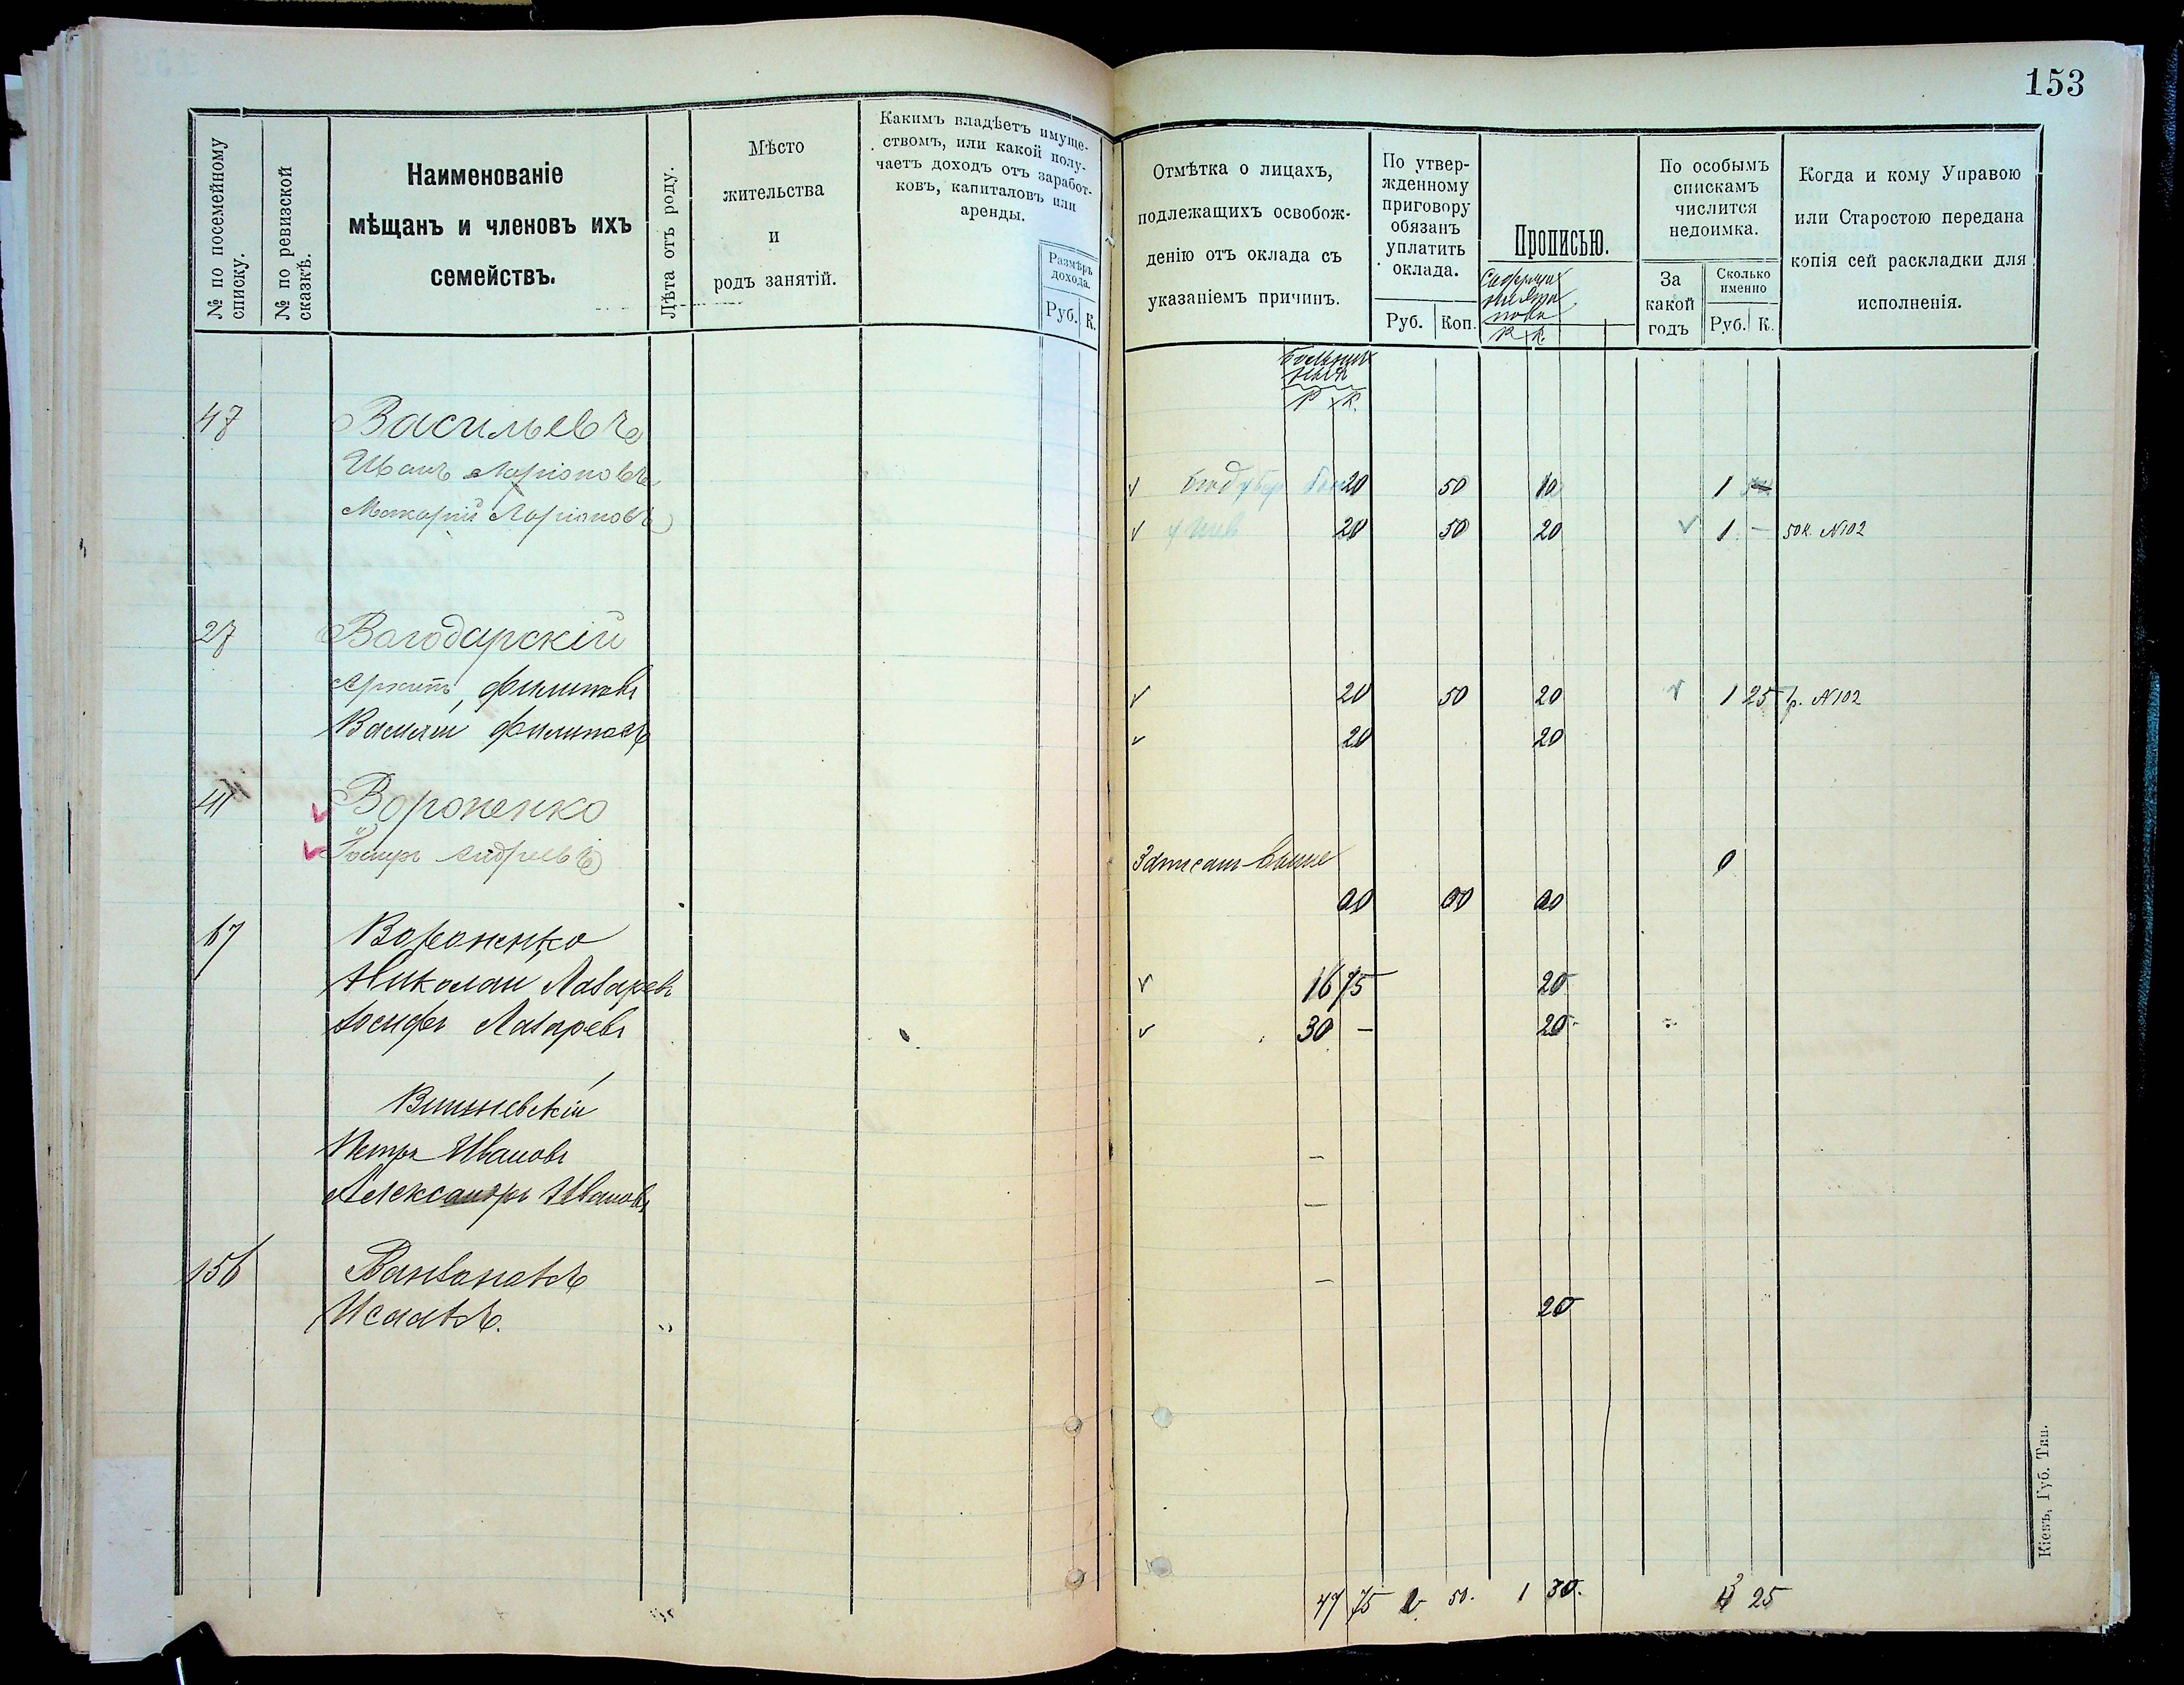 153
№ по посемейному списку.
№ по ревизской сказкѣ.
Наименованіе
мѣщанъ и членовъ ихъ
семействъ.
Лѣта отъ роду.
Мѣсто
жительства
и
родъ занятій.
Какимъ владѣетъ имуще-
ствомъ, или какой полу-
чаетъ доходъ отъ заработ-
ковъ, капиталовъ или
аренды.
Размѣръ
дохода.
Руб. К.
Отмѣтка о лицахъ,
подлежащихъ освобож-
денію отъ оклада съ
указаніемъ причинъ.
По утвер-
жденному
приговору
обязанъ
уплатить
оклада.
Руб. Коп.
Прописью.
Р К.
По особымъ
спискамъ
числится
недоимка.
За
какой
годъ
Сколько
именно
Руб. К.
Когда и кому Управою
или Старостою передана
копія сей раскладки для
исполненія.
Р К.
47 Васильевъ
Иванъ Ларіоновъ 20 50 10 1
Макарій Ларіоновъ 20 50 20 1 — 50к. №102
27 Вагодарскій
Филиповъ 20 50 20 1 25 р. №102
Василій Филиповъ 20 20
41 Вороненко
Андреевъ Записанъ выше 0
67 Вороненко
Николай Лазаревъ 16 75 20
Іосифъ Лазаревъ 30 — 20
Вишневскій
Петръ Ивановъ —
Александръ Ивановъ —
156 —
Исаевъ. 20
47 75 50. 1 30. 25
Кіевъ, Губ. Тип.